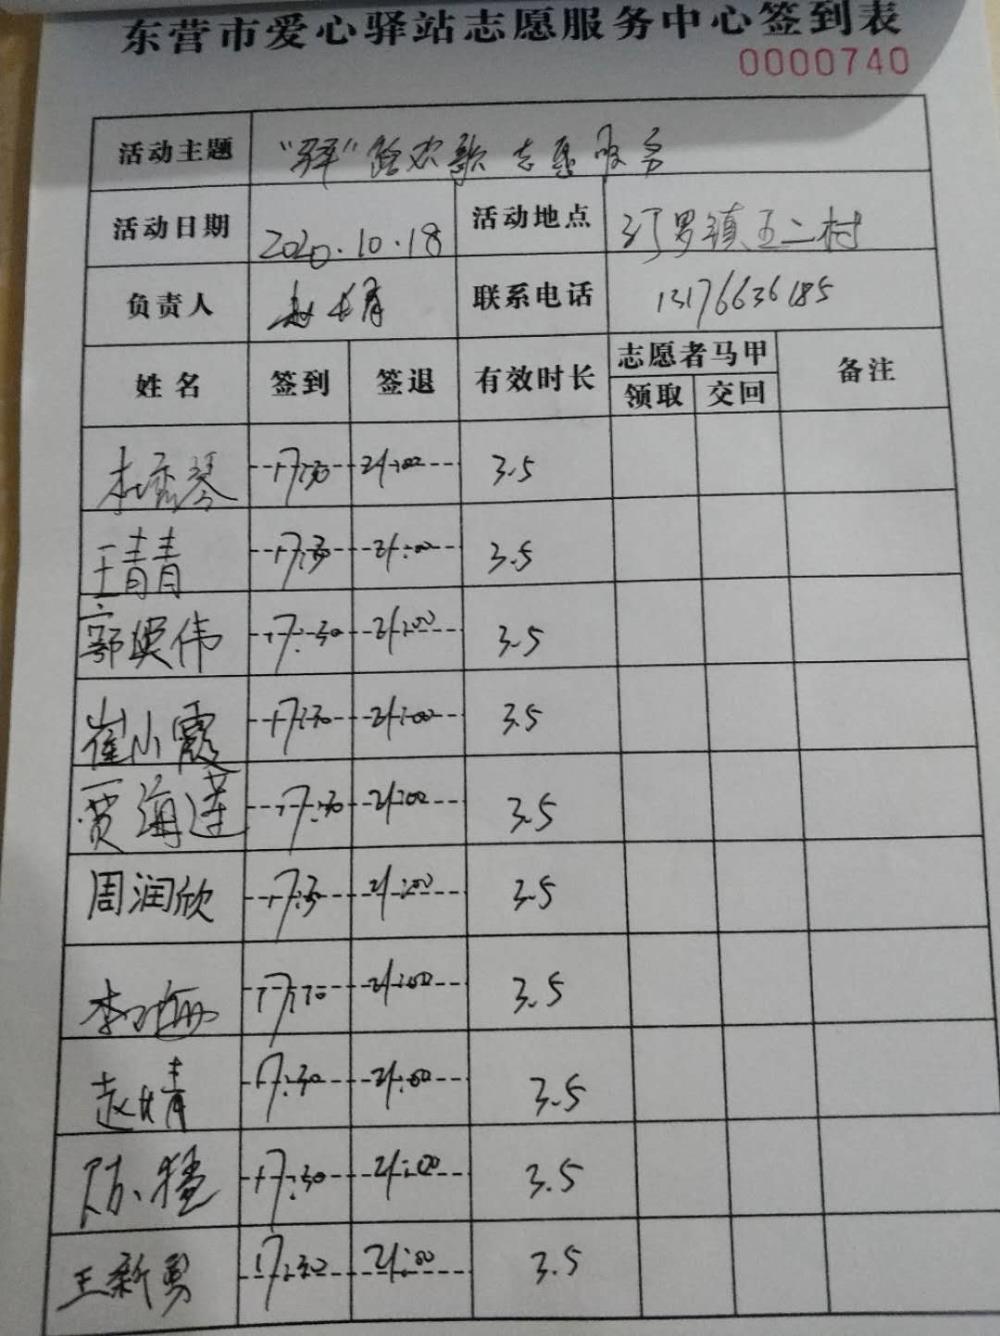 东营市爱心驿站志愿服务中心签到表
0000740
活动主题 “驿”路欢歌 志愿服务
活动日期 2020.10.18 活动地点 汀罗镇五二村
负责人 赵长青 联系电话 13176636185
姓名 签到 签退 有效时长 志愿者马甲 备注
领取 交回
杜秀琴 17:30 21:00 3.5
王青青 17:30 21:00 3.5
鄂英伟 17:30 21:00 3.5
崔小霞 17:30 21:00 3.5
贾海莲 17:30 21:00 3.5
周润欣 17:30 21:00 3.5
李 17:30 21:00 3.5
赵 17:30 21:00 3.5
陈 17:30 21:00 3.5
王新勇 17:30 21:00 3.5